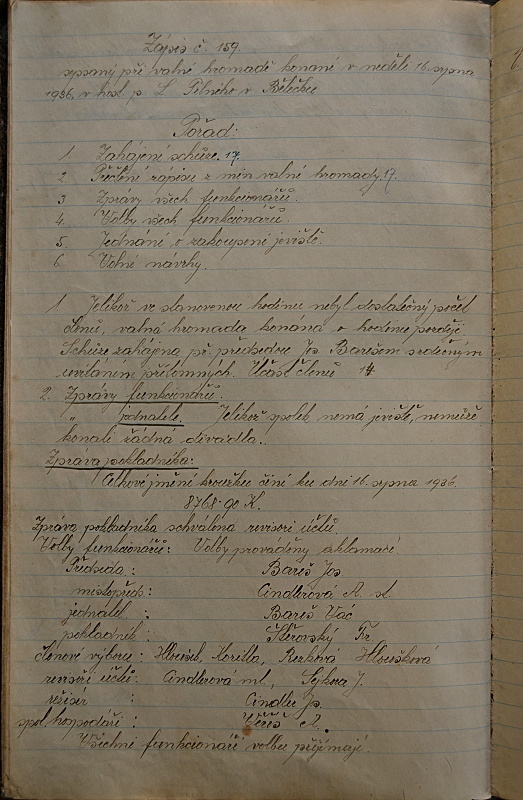 Zápis č. 159.
sepsaný při valné hromadě konané v neděli 16. srpna
1936. v host. p. L. Pilného v Bělečku
Pořad:
1. Zahájení schůze. 17.
2. Přečtení zápisu z min. valné hromady. 17.
3. Zprávy všech funkcionářů.
4. Volby všech funkcionářů.
5. Jednání o zakoupení jeviště.
6. Volné návrhy.
1. Jelikož ve stanovenou hodinu nebyl dostatečný počet
členů, valná hromada konána o hodinu později.
Schůze zahájena př. předsedou Jos. Barešem srdečným
uvítáním přítomných. Účast členů 14
2. Zprávy funkcionářů.
" jednatele. Jelikož spolek nemá jeviště, nemůže
konati žádná divadla.
Zpráva pokladníka:
Celkové jmění kroužku činí ku dni 16. srpna 1936.
8768·90 K.
Zpráva pokladníka schválena revisory účtů.
Volby funkcionářů: Volby prováděny aklamací
Předseda: Bareš Jos
místopřed: Cindlerová A. st.
jednatel: Bareš Vác
pokladník: Fr.
členové výboru: Korilla, Berková Hloušková
revisoři účtů: Cindlerová ml., Sýkora J.
režisér: Cindler Js.
spol. hospodář: A.
Všichni funkcionáři volbu přijímají.